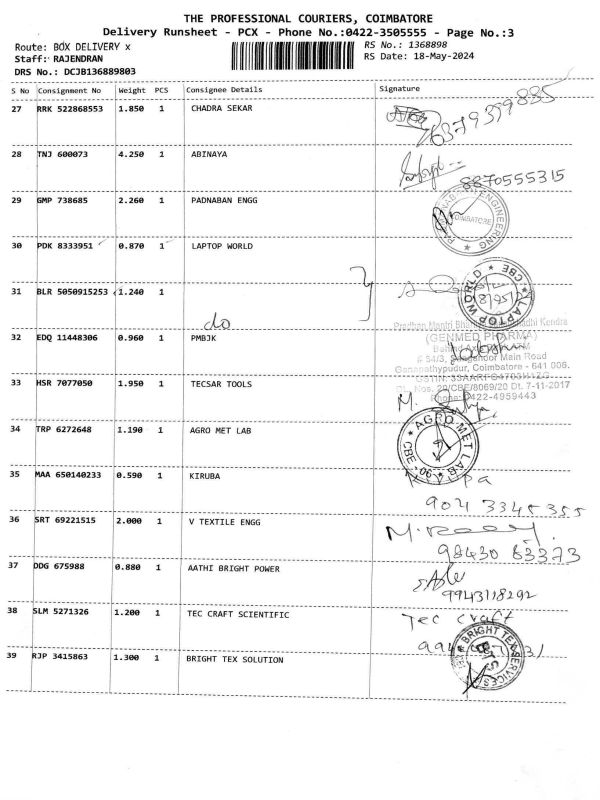 THE PROFESSIONAL COURIERS, COIMBATORE
Delivery Runsheet - PCX - Phone No.:0422-3505555 - Page No.:3
Route: BOX DELIVERY x
RS No.: 1368898
Staff: RAJENDRAN
RS Date: 18-May-2024
DRS No.: DCJB136889803
S No Consignment No Weight PCS Consignee Details Signature
27 RRK 522868553 1.850 1 CHADRA SEKAR
6379379885
28 TNJ 600073 4.250 1 ABINAYA
8870555315
29 GMP 738685 2.260 1 PADNABAN ENGG
ENGINEERING
COIMBATORE
30 PDK 8333951 0.870 1 LAPTOP WORLD
LAPTOP WORLD * CBE *
31 BLR 5050915253 1.240 1
do
32 EDQ 11448306 0.960 1 PMBJK
Pradhan Mantri Kendra
(GENMED PHARMA)
Main Road
Ganapathypudur, Coimbatore - 641 006.
20/CBE/8069/20 Dt. 7-11-2017
Phone: 0422-4959443
33 HSR 7077050 1.950 1 TECSAR TOOLS
M.
34 TRP 6272648 1.190 1 AGRO MET LAB
AGRO MET LAB * CBE
35 MAA 650140233 0.590 1 KIRUBA
904 3345355
36 SRT 69221515 2.000 1 V TEXTILE ENGG
98430 83373
37 DDG 675988 0.880 1 AATHI BRIGHT POWER
9943118292
38 SLM 5271326 1.200 1 TEC CRAFT SCIENTIFIC
Tec craft
39 RJP 3415863 1.300 1 BRIGHT TEX SOLUTION
BRIGHT TEX SERVICES